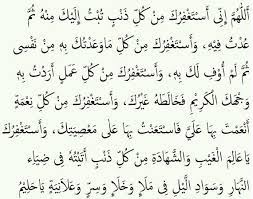 اَللّٰهُمَّ إِنِّى أَسْتَغْفِرُكَ مِنْ كُلِّ ذَنْبٍ تُبْتُ إِلَيْكَ مِنْهُ ثُمَّ
عُدْتُ فِيْهِ، وَأَسْتَغْفِرُكَ مِنْ كُلِّ مَاوَعَدْتُكَ بِهِ مِنْ نَفْسِى
ثُمَّ لَمْ أُوْفِ لَكَ بِهِ، وَأَسْتَغْفِرُكَ مِنْ كُلِّ عَمَلٍ أَرَدْتُ بِهِ
وَجْهَكَ الْكَرِيْمَ فَخَالَطَهُ غَيْرُكَ، وَأَسْتَغْفِرُكَ مِنْ كُلِّ نِعْمَةٍ
أَنْعَمْتَ بِهَا عَلَىَّ فَاسْتَعَنْتُ بِهَا عَلَى مَعْصِيَتِكَ، وَأَسْتَغْفِرُكَ
يَاعَالِمَ الْغَيْبِ وَالشَّهَادَةِ مِنْ كُلِّ ذَنْبٍ أَتَيْتُهُ فِى ضِيَاءِ
النَّهَارِ وَسَوَادِ الَّيْلِ فِى مَلَاءٍ وَخَلَاءٍ وَسِرٍّ وَعَلَانِيَةٍ يَاحَلِيْمُ